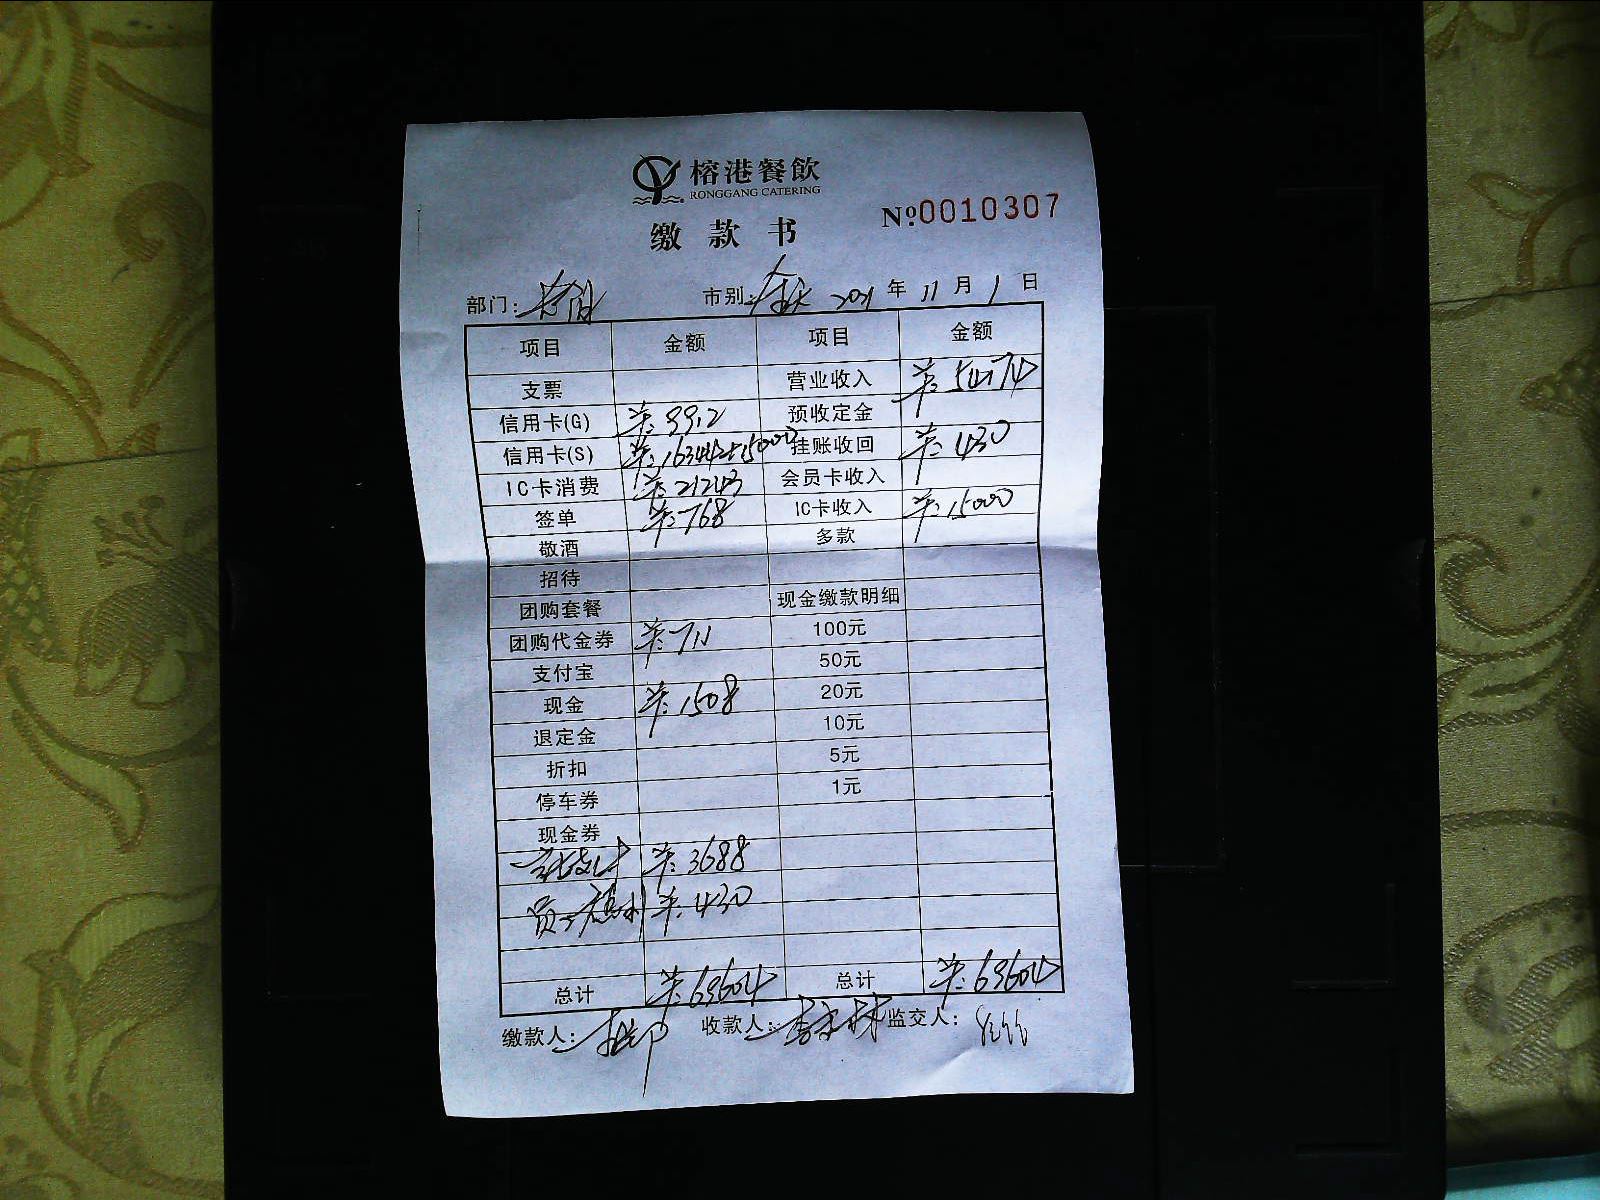 榕港餐飲
RONGGANG CATERING
缴款书
№0010307
部门: 市别: 2021年11月1日
项目 金额 项目 金额
支票 营业收入 ¥:54174
信用卡(G) ¥:9912 预收定金
信用卡(S) ¥:16344+15000 挂账收回 ¥:430
IC卡消费 ¥:21243 会员卡收入
签单 ¥:768 IC卡收入 ¥:15000
敬酒 多款
招待
团购套餐 现金缴款明细
团购代金券 ¥:711 100元
支付宝 50元
现金 ¥:1508 20元
退定金 10元
折扣 5元
停车券 1元
现金券
¥:3688
员工福利 ¥:430
总计 ¥:69604 总计 ¥:69604
缴款人: 收款人: 监交人: